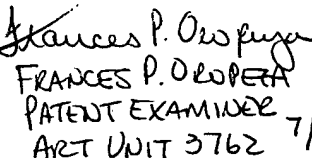 Frances P. Oropeza
FRANCES P. OROPEZA
PATENT EXAMINER
ART UNIT 3762 7/